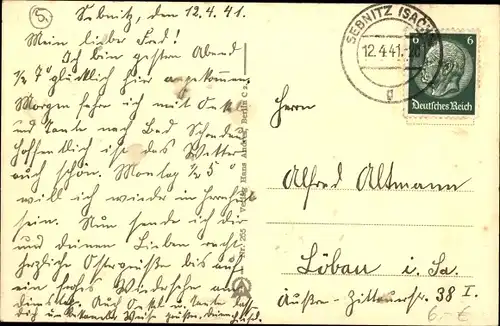 5.
Sebnitz, den 12.4.41.
Mein lieber Fred!
Ich bin gestern Abend
½ 7° glücklich hier angekommen.
Morgen fahre ich mit Onkel
und Tante nach Bad Schandau
hoffentlich ist das Wetter
auch schön. Montag ½ 5°
will ich wieder in
sein. Nun sende ich dir
und deinen Lieben recht
herzliche Ostergrüße bis auf
ein frohes Wiedersehn am
Dienstag. Auch Onkel u. Tante lassen
dich unbekannter Weise grüßen.
Nr. 255 Verlag Hans Andres, Berlin C 2
SEBNITZ (SACHS)
12.4.41.
g
6 6
Deutsches Reich
Herrn
Alfred Altmann
Löbau i. Sa.
Äußre-Zittauerstr. 38 I.
6.- €